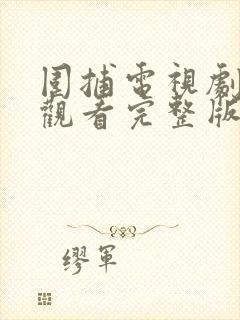 圍捕電視劇
觀看完整版
繆軍